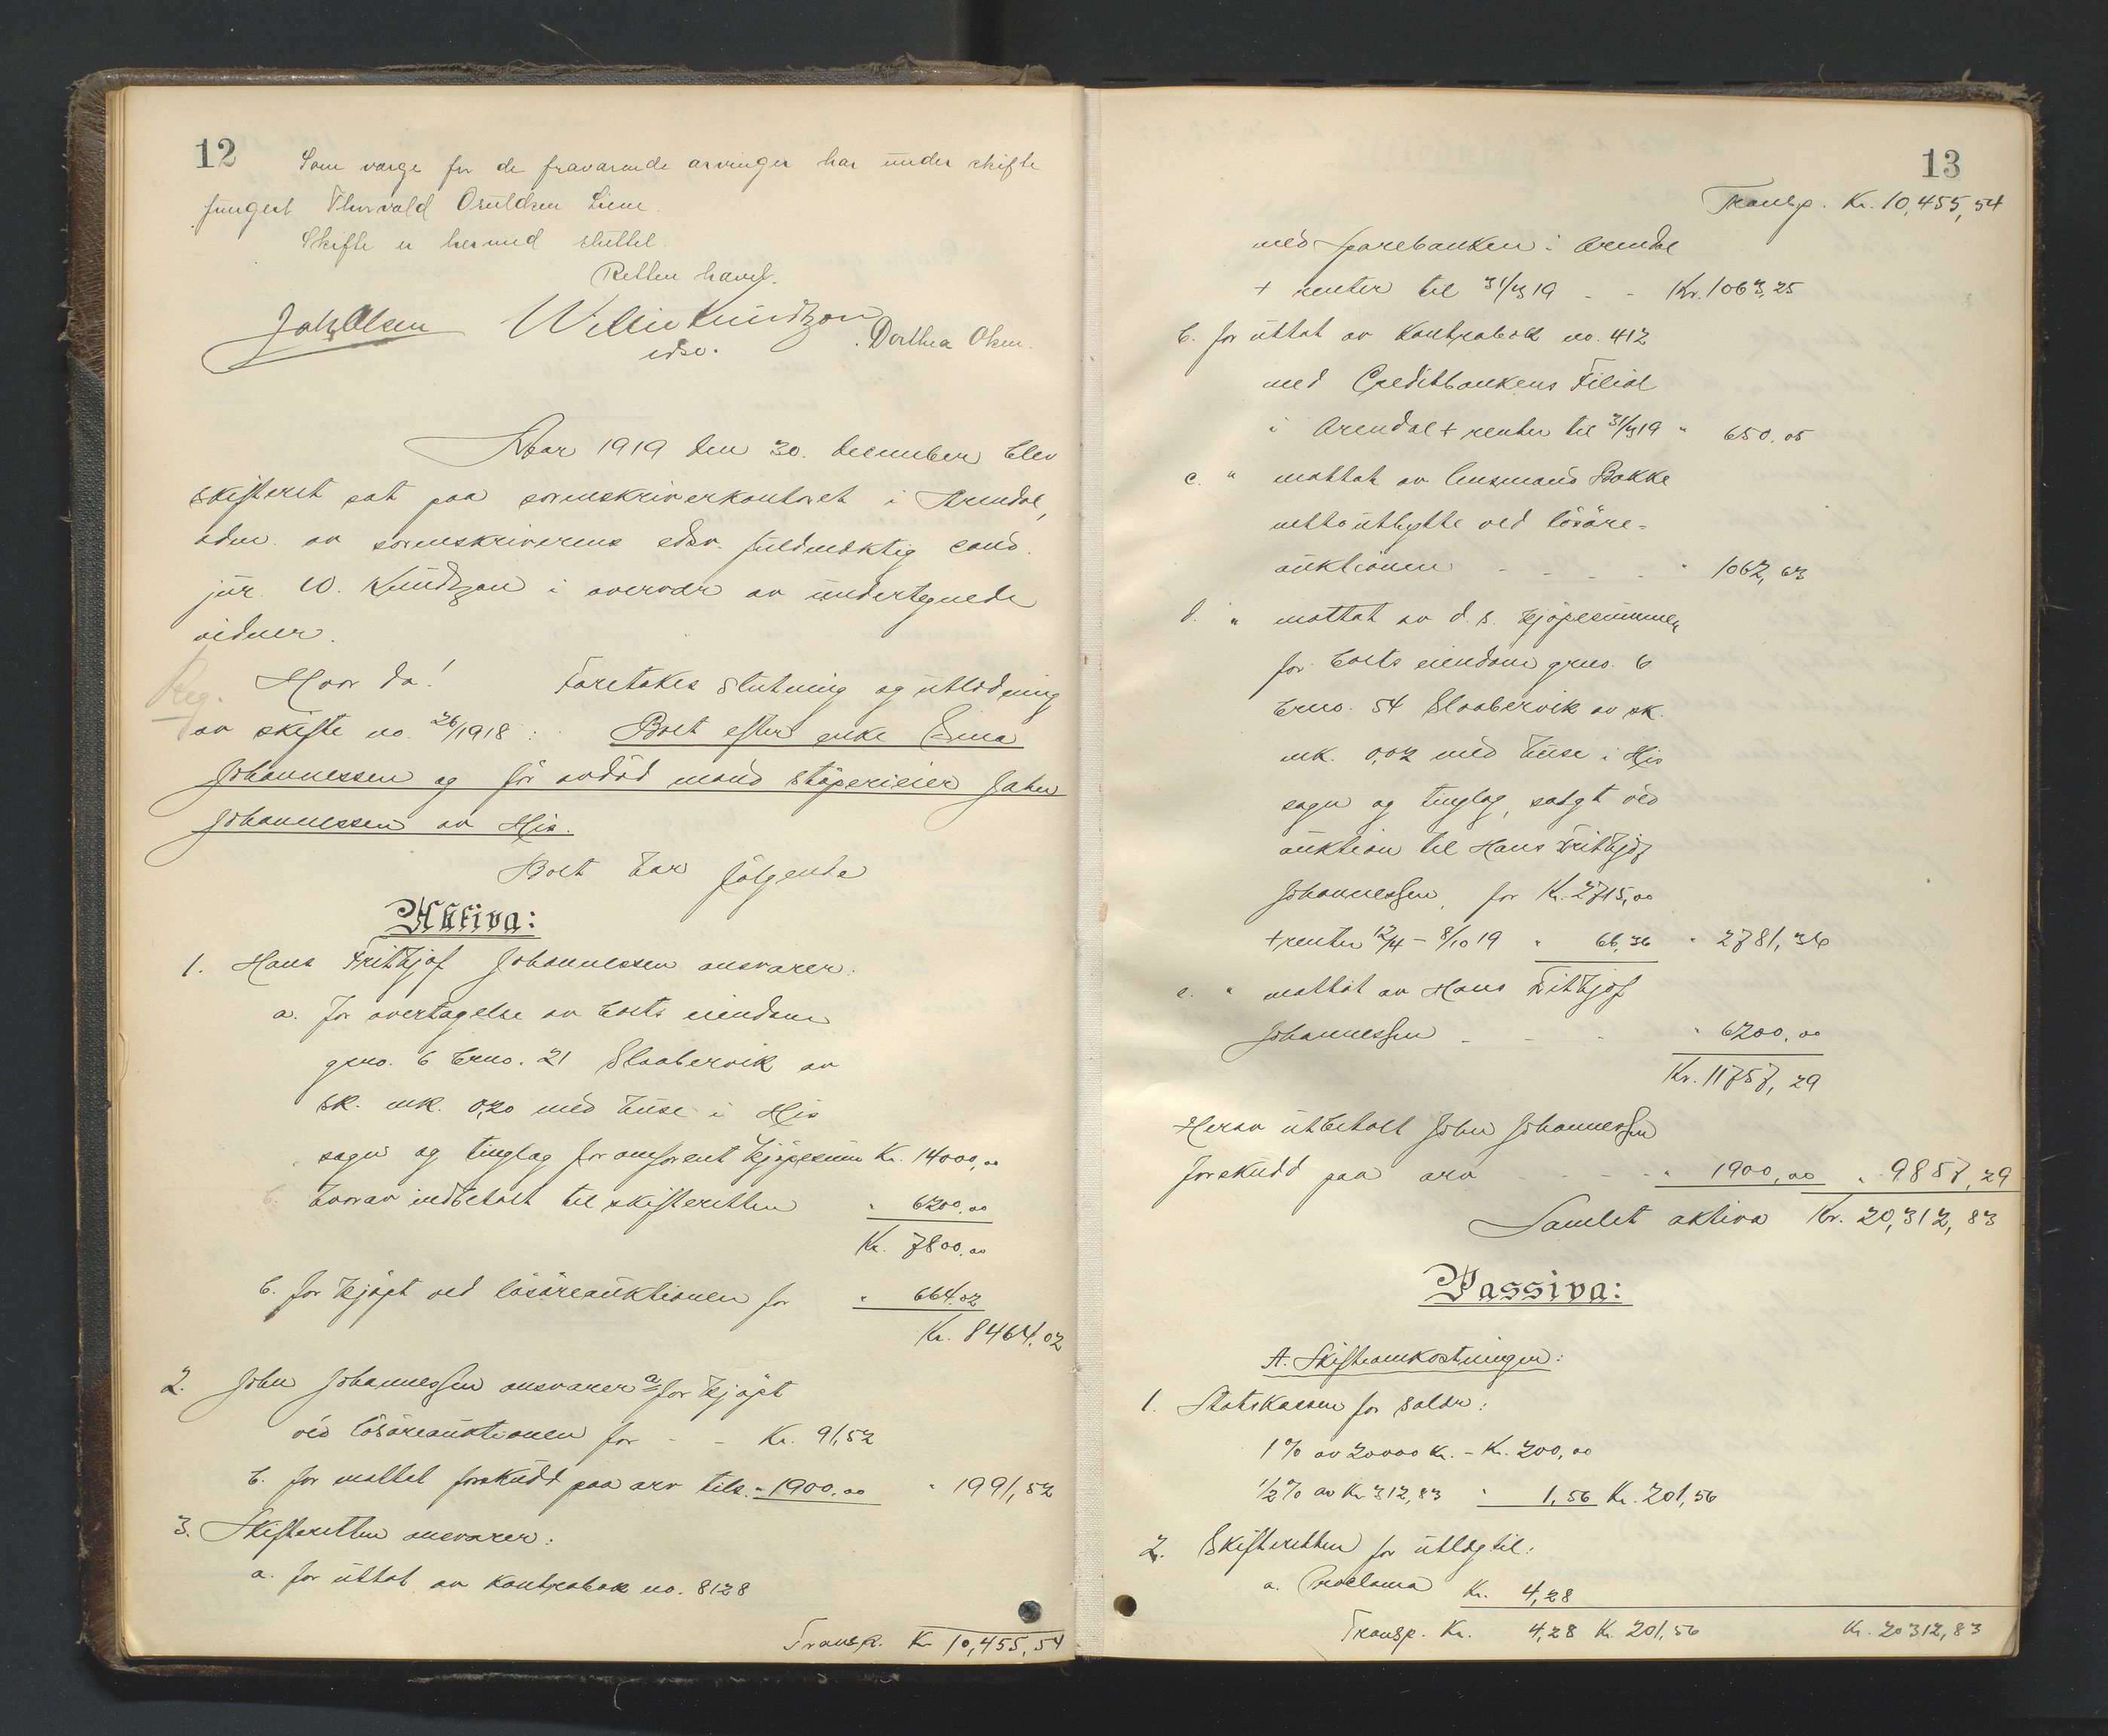 12
Som værge for de fraværende arvinger har under skifte
fungert Thorvald Osuldsen Liene.
Skifte er hermed sluttet.
Retten hævet.
Joh. Olsen Willie Knudtzon Dorthea Olsen.
edsv.
Aar 1919 den 30. december blev
skifteret sat paa sorenskriverkontoret i Arendal,
adm. av sorenskriverens edsv. fuldmæktig cand.
jur. W. Knudtzon i overvær av undertegnede
vidner.
Reg. Hvor da! Foretokes slutning og utlodning
av skifte no. 26/1918: Boet efter enke Lina
Johannessen og før avdød mand støperieier John
Johannessen av His.
Boet har følgende
Aktiva:
1. Hans Frithjof Johannessen ansvarer:
a. for overtagelse av boets eiendom
grno. 6 brno. 21 Slaabervik av
sk. mk. 0,20 med huse i His
sogn og tinglag for omforent kjøpesum Kr. 14000,00
hvorav indbetalt til skifteretten " 6200,00
Kr. 7800,00
b. for kjøpt ved løsøreauktionen for " 664.02
Kr. 8464.02
2. John Johannessen ansvarer a. for kjøpt
ved løsøreauktionen for - - Kr. 91,52
b. for mottat forskudd paa arv tils. " 1900,00 " 1991,52
3. Skifteretten ansvarer:
a. for uttat av Kontrabok no. 8128
Transp. Kr 10,455,54
13
Transp. Kr. 10,455,54
med Sparebanken i Arendal
+ renter til 31/3 19 - - Kr. 1063,25
b. for uttat av Kontrabok no. 412
med Creditbankens Filial
i Arendal + renter til 31/3 19 " 650.05
c. " mottat av lensmand Bakke
nettoutbytte ved løsøre=
auktionen - - - - " 1062,63
d. " mottat av d. s. kjøpesummen
for boets eiendom grno. 6
brno. 54 Slaabervik av sk.
mk. 0,02 med huse i His
sogn og tinglag, solgt ved
auktion til Hans Frithjof
Johannessen, for Kr. 2715,00
+ renter 12/4 - 8/10 19 " 66,36 " 2781,36
e. " mottat av Hans Frithjof
Johannessen - - - " 6200,00
Kr. 11757,29
Herav utbetalt John Johannessen
forskudd paa arv - - - - " 1900,00 " 9857,29
Samlet aktiva Kr. 20,312,83
Passiva:
A. Skifteomkostninger:
1. Statskassen for salær:
1 % av 20000 Kr. - Kr. 200,00
1/2 % av Kr 312,83 " 1,56 Kr. 201,56
2. Skifteretten for utlæg til:
a. Proclama Kr. 4,28
Transp. Kr. 4,28 Kr. 201,56 Kr. 20312,83